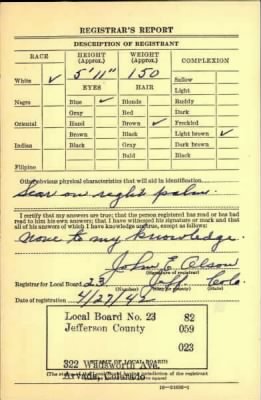 REGISTRAR'S REPORT
DESCRIPTION OF REGISTRANT
RACE HEIGHT (Approx.) WEIGHT (Approx.) COMPLEXION
White ✓ 5' 11" 150 Sallow
EYES HAIR Light
Negro Blue ✓ Blonde Ruddy
Gray Red Dark
Oriental Hazel Brown ✓ Freckled
Brown Black Light brown ✓
Indian Black Gray Dark brown
Bald Black
Filipino
Other obvious physical characteristics that will aid in identification
Scar on right palm.
I certify that my answers are true; that the person registered has read or has had
read to him his own answers; that I have witnessed his signature or mark and that
all of his answers of which I have knowledge are true, except as follows:
None to my knowledge.
John E Olson
(Signature of registrar)
Registrar for Local Board 23 Jeff. Colo.
(Number) (City or county) (State)
Date of registration 4/27/42
Local Board No. 23 82
Jefferson County 059
023
322 Wadsworth Ave.
(STAMP OF LOCAL BOARD)
Arvada, Colorado
16—21630-1